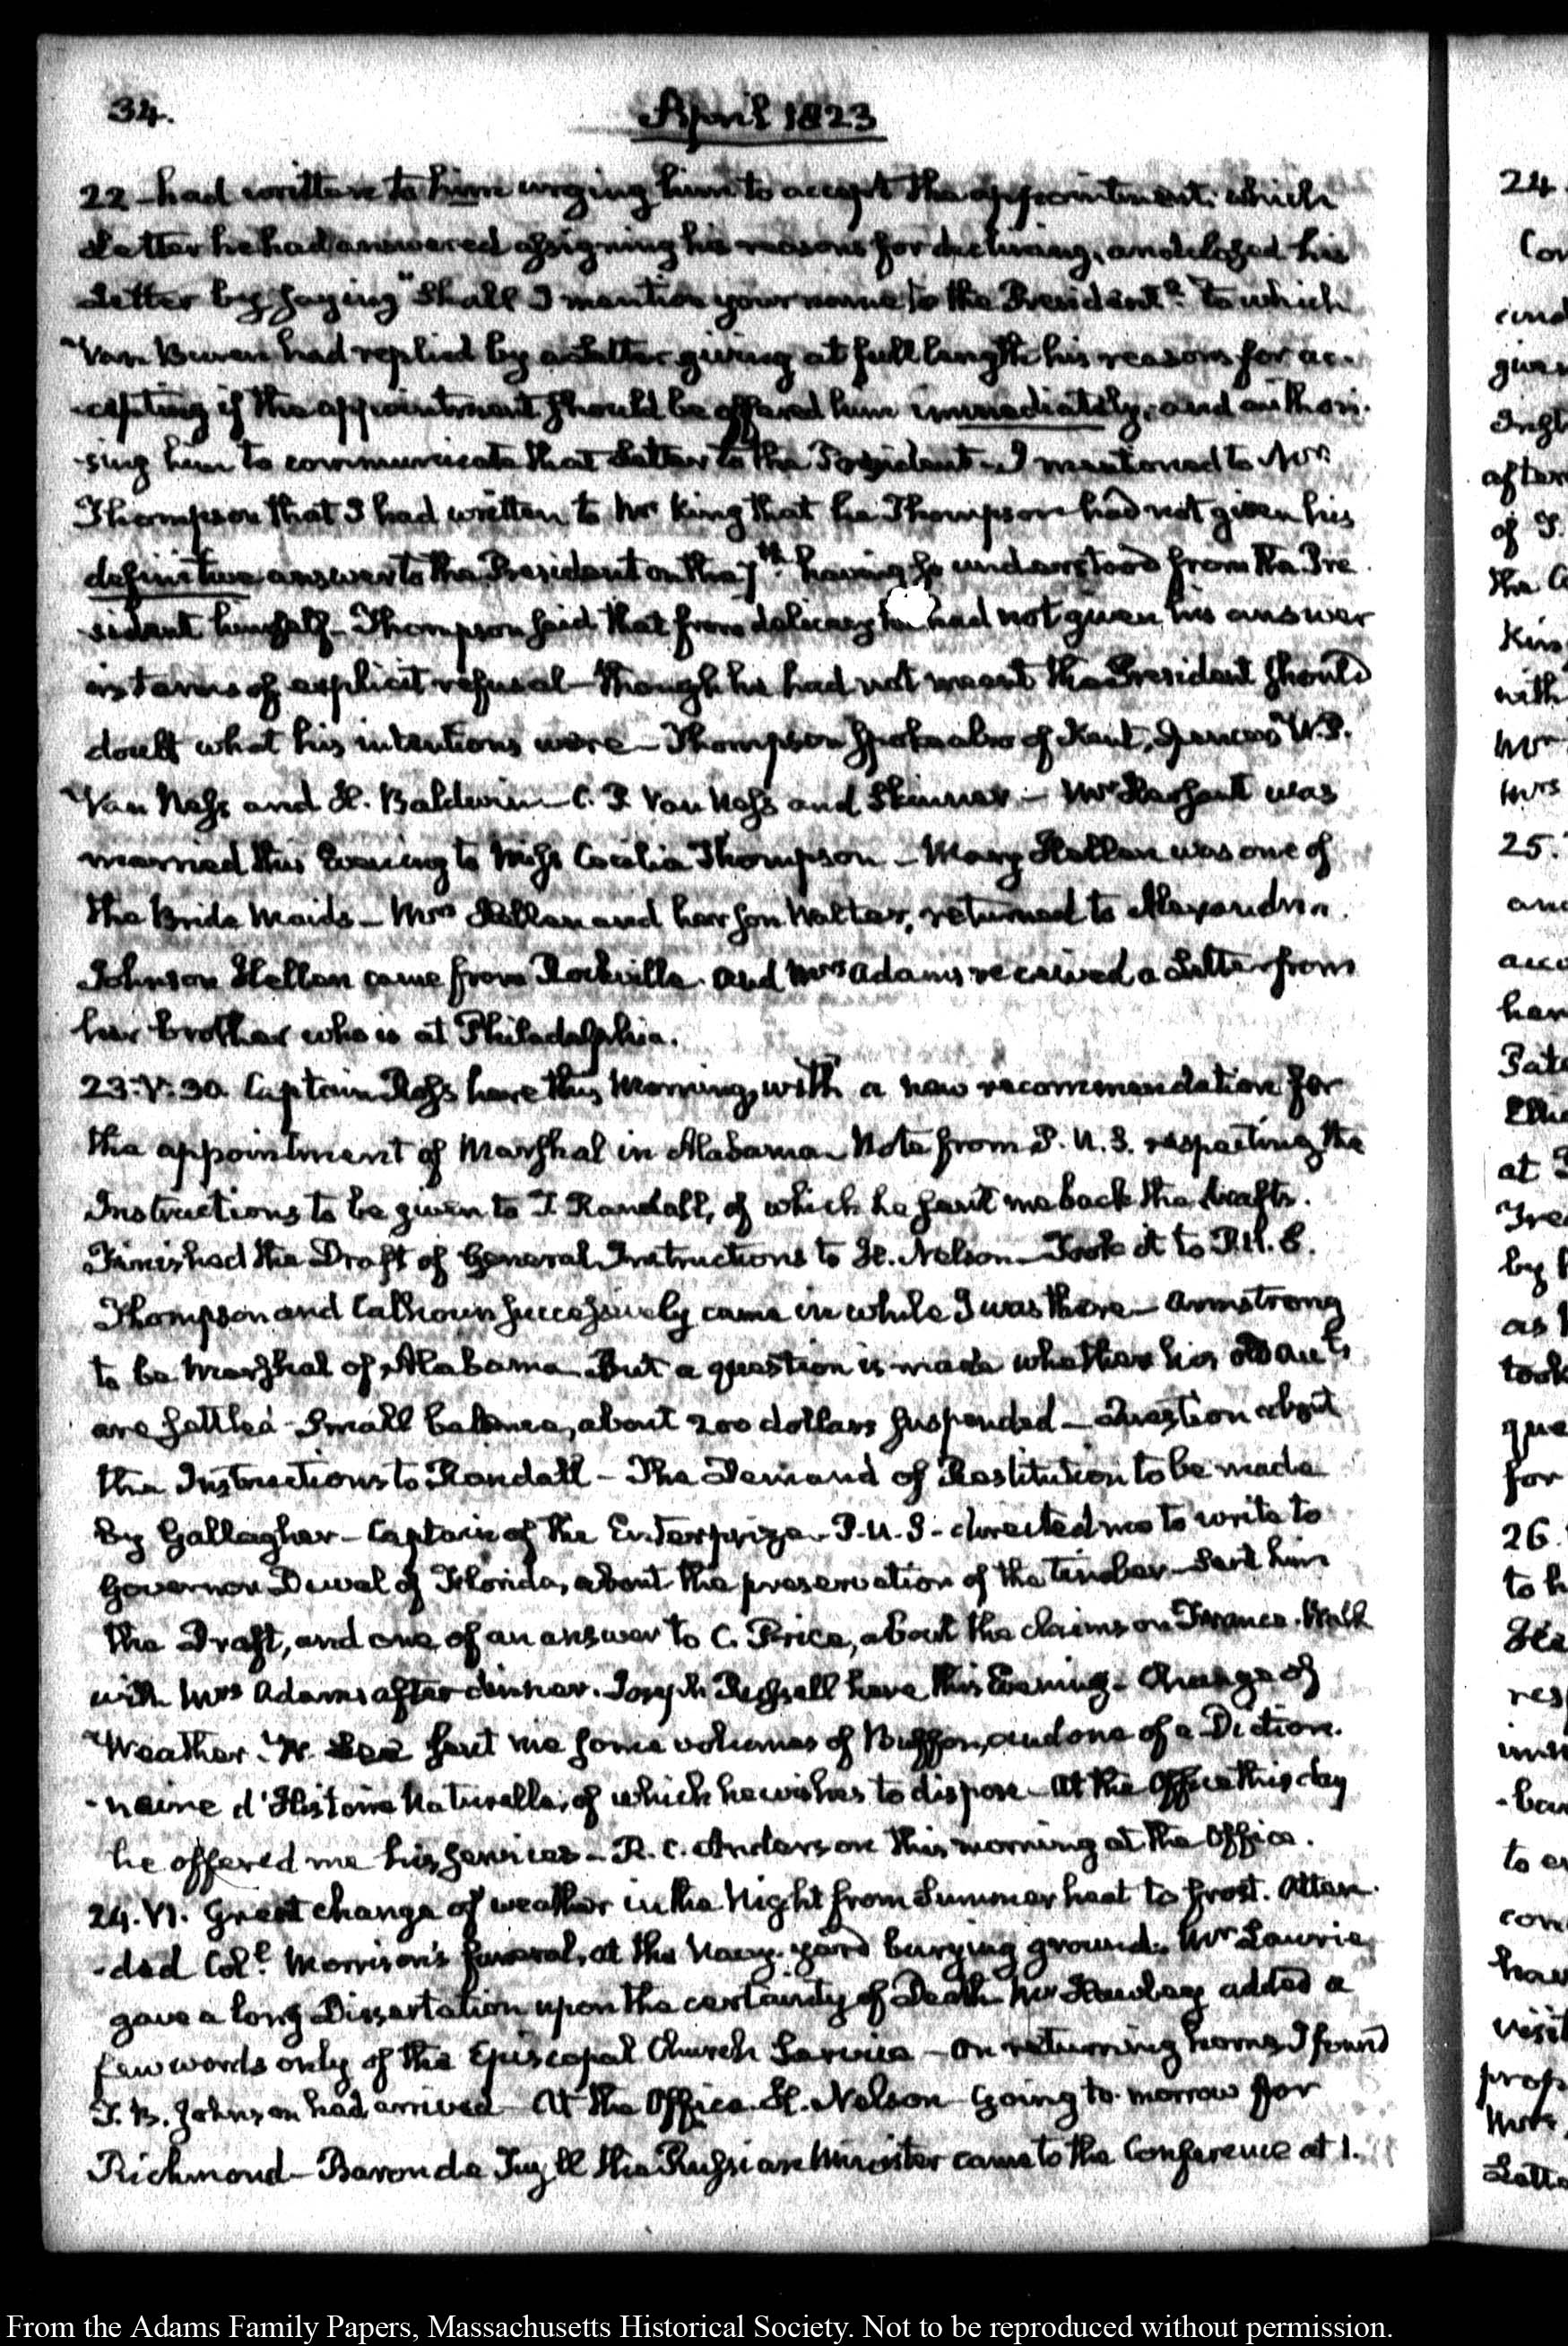 34.
April 1823
22 - had written to him urging him to accept the appointment. which
Letter he had answered assigning his reasons for declining, and closed his
Letter by saying "Shall I mention your name to the President"? To which
Van Buren had replied by a Letter giving at full length his reasons for ac-
-cepting if the appointment should be offered him immediately, and authori-
-sing him to communicate that Letter to the President - I mentioned to Mr
Thompson that I had written to Mr King that he Thompson had not given his
definitive answer to the President on the 7th. having so understood from the Pre-
sident himself - Thompson said that from delicacy he had not given his answer
in terms of explicit refusal - though he had not meant the President should
doubt what his intentions were - Thompson spoke also of Kent, Spencer, W. P.
Van Ness and H. Baldwin - C. P. Van Ness and Skinner - Mr Sergeant was
married this Evening to Miss Cecilia Thompson - Mary Hellen was one of
the Bride Maids - Mrs Hellen and her son Walter, returned to Alexandria.
Johnson Hellen came from Rockville. and Mrs Adams received a Letter from
her brother who is at Philadelphia.
23. V. 30. Captain Ross here this Morning, with a new recommendation for
the appointment of Marshal in Alabama - Note from P. U. S. respecting the
Instructions to be given to T. Randall, of which he sent me back the drafts.
Finished the Draft of General Instructions to H. Nelson - Took it to P. U. S.
Thompson and Calhoun successively came in while I was there - Armstrong
to be Marshal of Alabama - But a question is made whether his old accts
are settled - Small balance, about 200 dollars suspended - Question about
the Instructions to Randall - The Demand of Restitution to be made
by Gallagher - Captain of the Enterprize - P. U. S. directed me to write to
Governor Duval of Florida, about the preservation of the timber - Sent him
the Draft, and one of an answer to C. Price, about the claims on France. Walk
with Mrs Adams after dinner. Joseph Russell here this Evening - Change of
Weather. W. Lee sent me some volumes of Buffon, and one of a Diction-
-naire d'Histoire Naturelle, of which he wishes to dispose - At the Office this day
he offered me his services - R. C. Anderson this morning at the Office.
24. VI. Great change of weather in the Night from Summer heat to frost. Atten-
-ded Coll. Morrison's funeral, at the Navy-yard burying ground. Mr Lowrie
gave a long Dissertation upon the certainty of Death - Mr Hawley added a
few words only of the Episcopal Church Service - On returning home I found
T. B. Johnson had arrived - At the Office. H. Nelson - Going to-morrow for
Richmond - Baron de Tuyll the Russian Minister came to the Conference at 1.
24
25.
26.
From the Adams Family Papers, Massachusetts Historical Society. Not to be reproduced without permission.